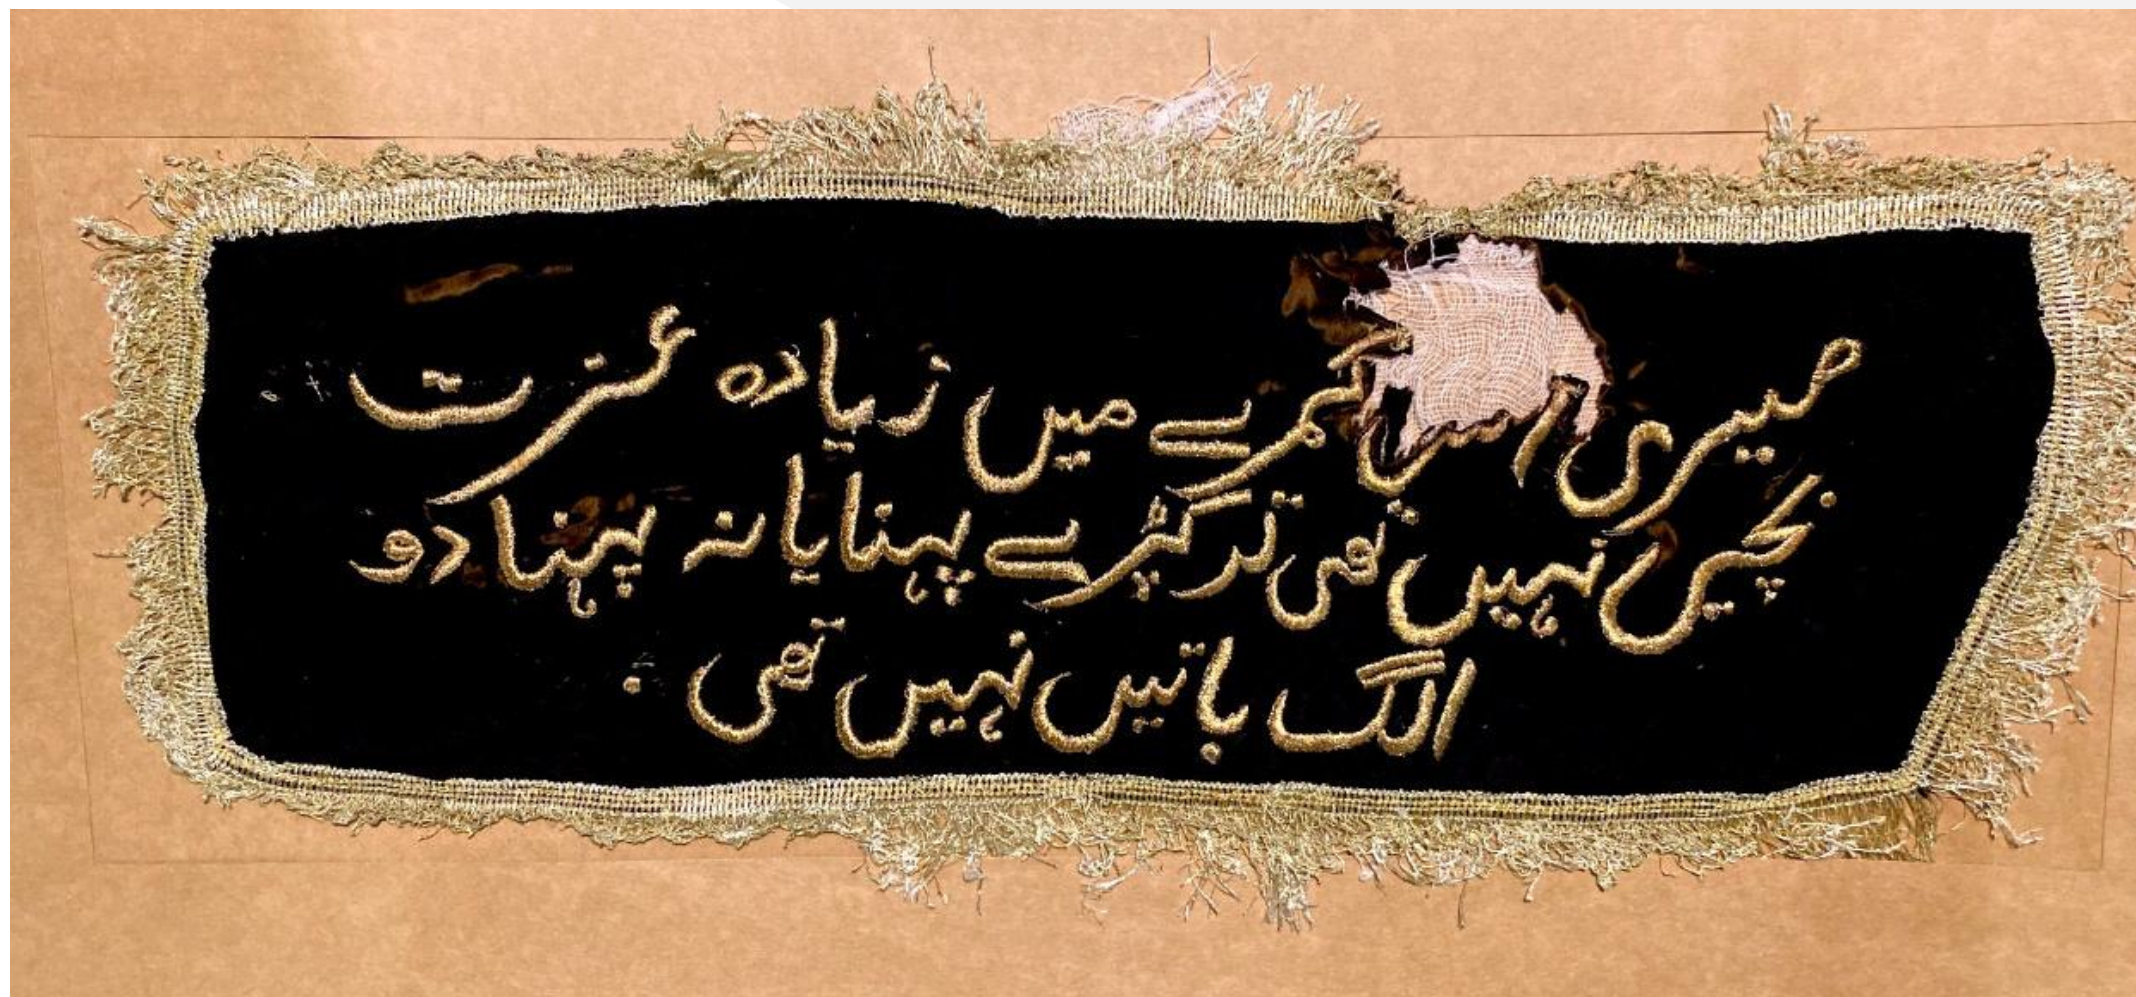 میری کمرے میں زیادہ عزت
نہیں تھی تو کپڑے پہنا یا نہ پہنا دو
الگ باتیں نہیں تھی ۔